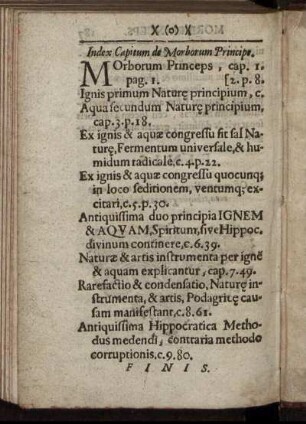 X (o) X
Index Capitum de Morborum Principe.
Morborum Princeps, cap. 1.
pag. 1. [2. p. 8.
Ignis primum Naturę principium, c.
Aqua secundum Naturę principium,
cap. 3. p. 18.
Ex ignis & aquæ congressu fit sal Na-
turę, Fermentum universale, & hu-
midum radicale, c. 4. p. 22.
Ex ignis & aquæ congressu quocunq;
in loco seditionem, ventumq; ex-
citari, c. 5. p. 30.
Antiquissima duo principia IGNEM
& AQVAM, Spiritum, sive Hippoc.
divinum continere, c. 6. 39.
Naturæ & artis instrumenta per ignē
& aquam explicantur, cap. 7. 49.
Rarefactio & condensatio, Naturę in-
strumenta, & artis, Podagricę cau-
sam manifestant, c. 8. 61.
Antiquissima Hippocratica Metho-
dus medendi, contraria methodo
corruptionis. c. 9. 80.
FINIS.